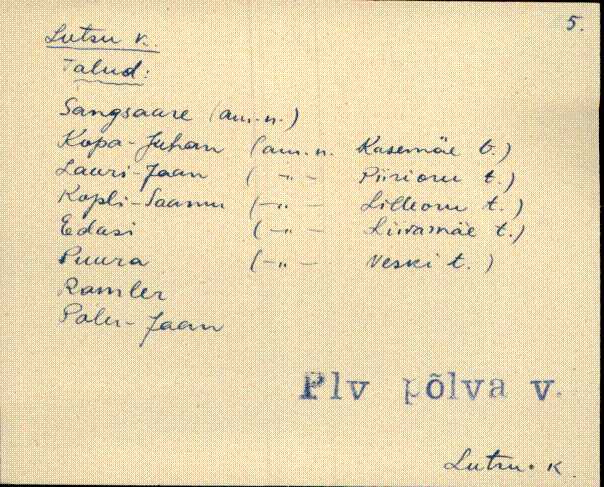 5.
Lutsu v.
Talud:
Sangsaare (am.n.)
Kopa-Juhan (am.n. Kasemäe t.)
Lauri-Jaan ( -"- Piirioru t.)
Kopli-Saamu (-"- Lilleoru t.)
Edasi (-"- Liivamäe t.)
Puura (-"- Veski t.)
Ramler
Palu-Jaan
Plv põlva v.
Lutsu. K.